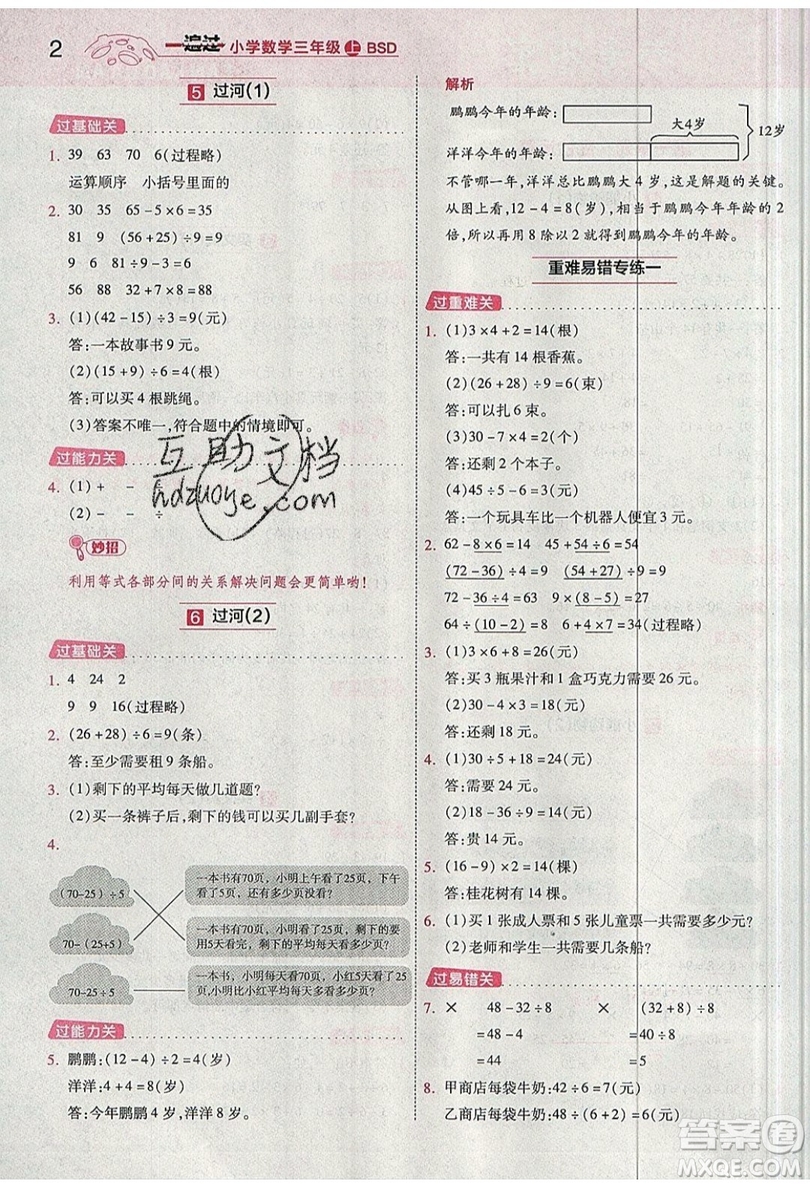 2
一遍过 小学数学三年级 上 BSD
5 过河(1)
过基础关
1. 39 63 70 6(过程略)
运算顺序 小括号里面的
2. 30 35 65-5×6=35
81 9 (56+25)÷9=9
9 9
56 88 32+7×8=88
3. (1)(42-15)÷3=9(元)
答:一本故事书9元。
(2)(15+9)÷6=4(根)
答:可以买4根跳绳。
(3)答案不唯一,符合题中的情境即可。
过能力关
4. (1)+ - ÷
(2)- - ÷
妙招
利用等式各部分间的关系解决问题会更简单哟!
6 过河(2)
过基础关
1. 4 24 2
9 9 16(过程略)
2. (26+28)÷6=9(条)
答:至少需要租9条船。
3. (1)剩下的平均每天做几道题?
(2)买一条裤子后,剩下的钱可以买几副手套?
4.
(70-25)÷5
一本书有70页,小明上午看了25页,下午看了5页,还有多少页没看?
70-(25+5)
一本书有70页,小明第一天看了25页,剩下的5天看完,剩下的平均每天看多少页?
70-25÷5
一本书,小明每天看70页,小红5天看了25页,小明每天比小红每天多看多少页?
过能力关
5. 鹏鹏:(12-4)÷2=4(岁)
洋洋:4+4=8(岁)
答:今年鹏鹏4岁,洋洋8岁。
解析
鹏鹏今年的年龄:
大4岁
12岁
洋洋今年的年龄:
不管哪一年,洋洋总比鹏鹏大4岁,这是解题的关键。
从图上看,12-4=8(岁),相当于鹏鹏今年年龄的2
倍,所以再用8除以2就得到鹏鹏今年的年龄。
重难易错专练一
过重难关
1. (1)3×4+2=14(根)
答:一共有14根香蕉。
(2)(26+28)÷9=6(束)
答:可以扎6束。
(3)20-3×6=2(个)
答:还剩2个本子。
(4)45÷5-6=3(元)
答:一个玩具车比一个机器人便宜3元。
2. 62-8×6=14 45+54÷6=54
(72-36)÷9=4 (63-9)÷9=6
72-36÷9=68 9×(8-5)=27
64÷(10-2)=8 6+4×7=34(过程略)
3. (1)3×6+8=26(元)
答:买3瓶果汁和1盒巧克力需要26元。
(2)30-4×3=18(元)
答:还剩18元。
4. (1)30÷5+18=24(元)
答:需要24元。
(2)18-36÷9=14(元)
答:贵14元。
5. (16-9)×2=14(棵)
答:桂花树有14棵。
6. (1)买1张成人票和5张儿童票一共需要多少元?
(2)老师和学生一共需要几条船?
过易错关
7. × 48-32÷8 × (32+8)÷8
=48-4 =40÷8
=44 =5
8. 甲商店每袋牛奶:42÷6=7(元)
乙商店每袋牛奶:48÷(6+2)=6(元)
互助文档
hdzuoye.com
答案圈
MXQE.COM